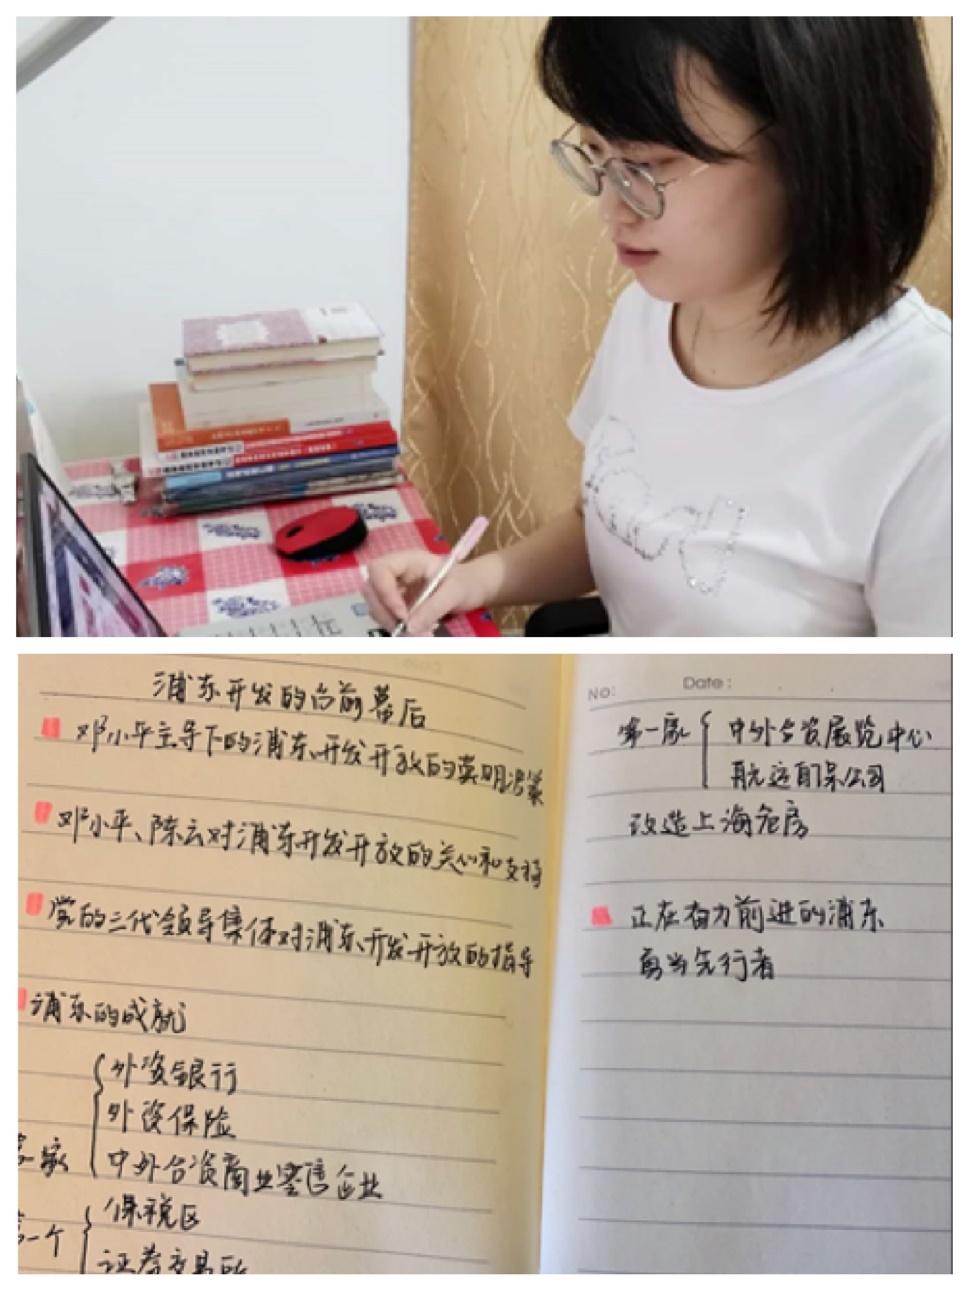 浦东开发的台前幕后
邓小平主导下的浦东开发开放的英明决策
邓小平、陈云对浦东开发开放的关心和支持
党的三代领导集体对浦东开发开放的指导
浦东的成就
外资银行
外资保险
家
中外合资商业零售企业
保税区
一个
证券交易所
No:
Date:
第一家
中外合资展览中心
航运自保公司
改造上海危房
正在奋力前进的浦东
勇当先行者